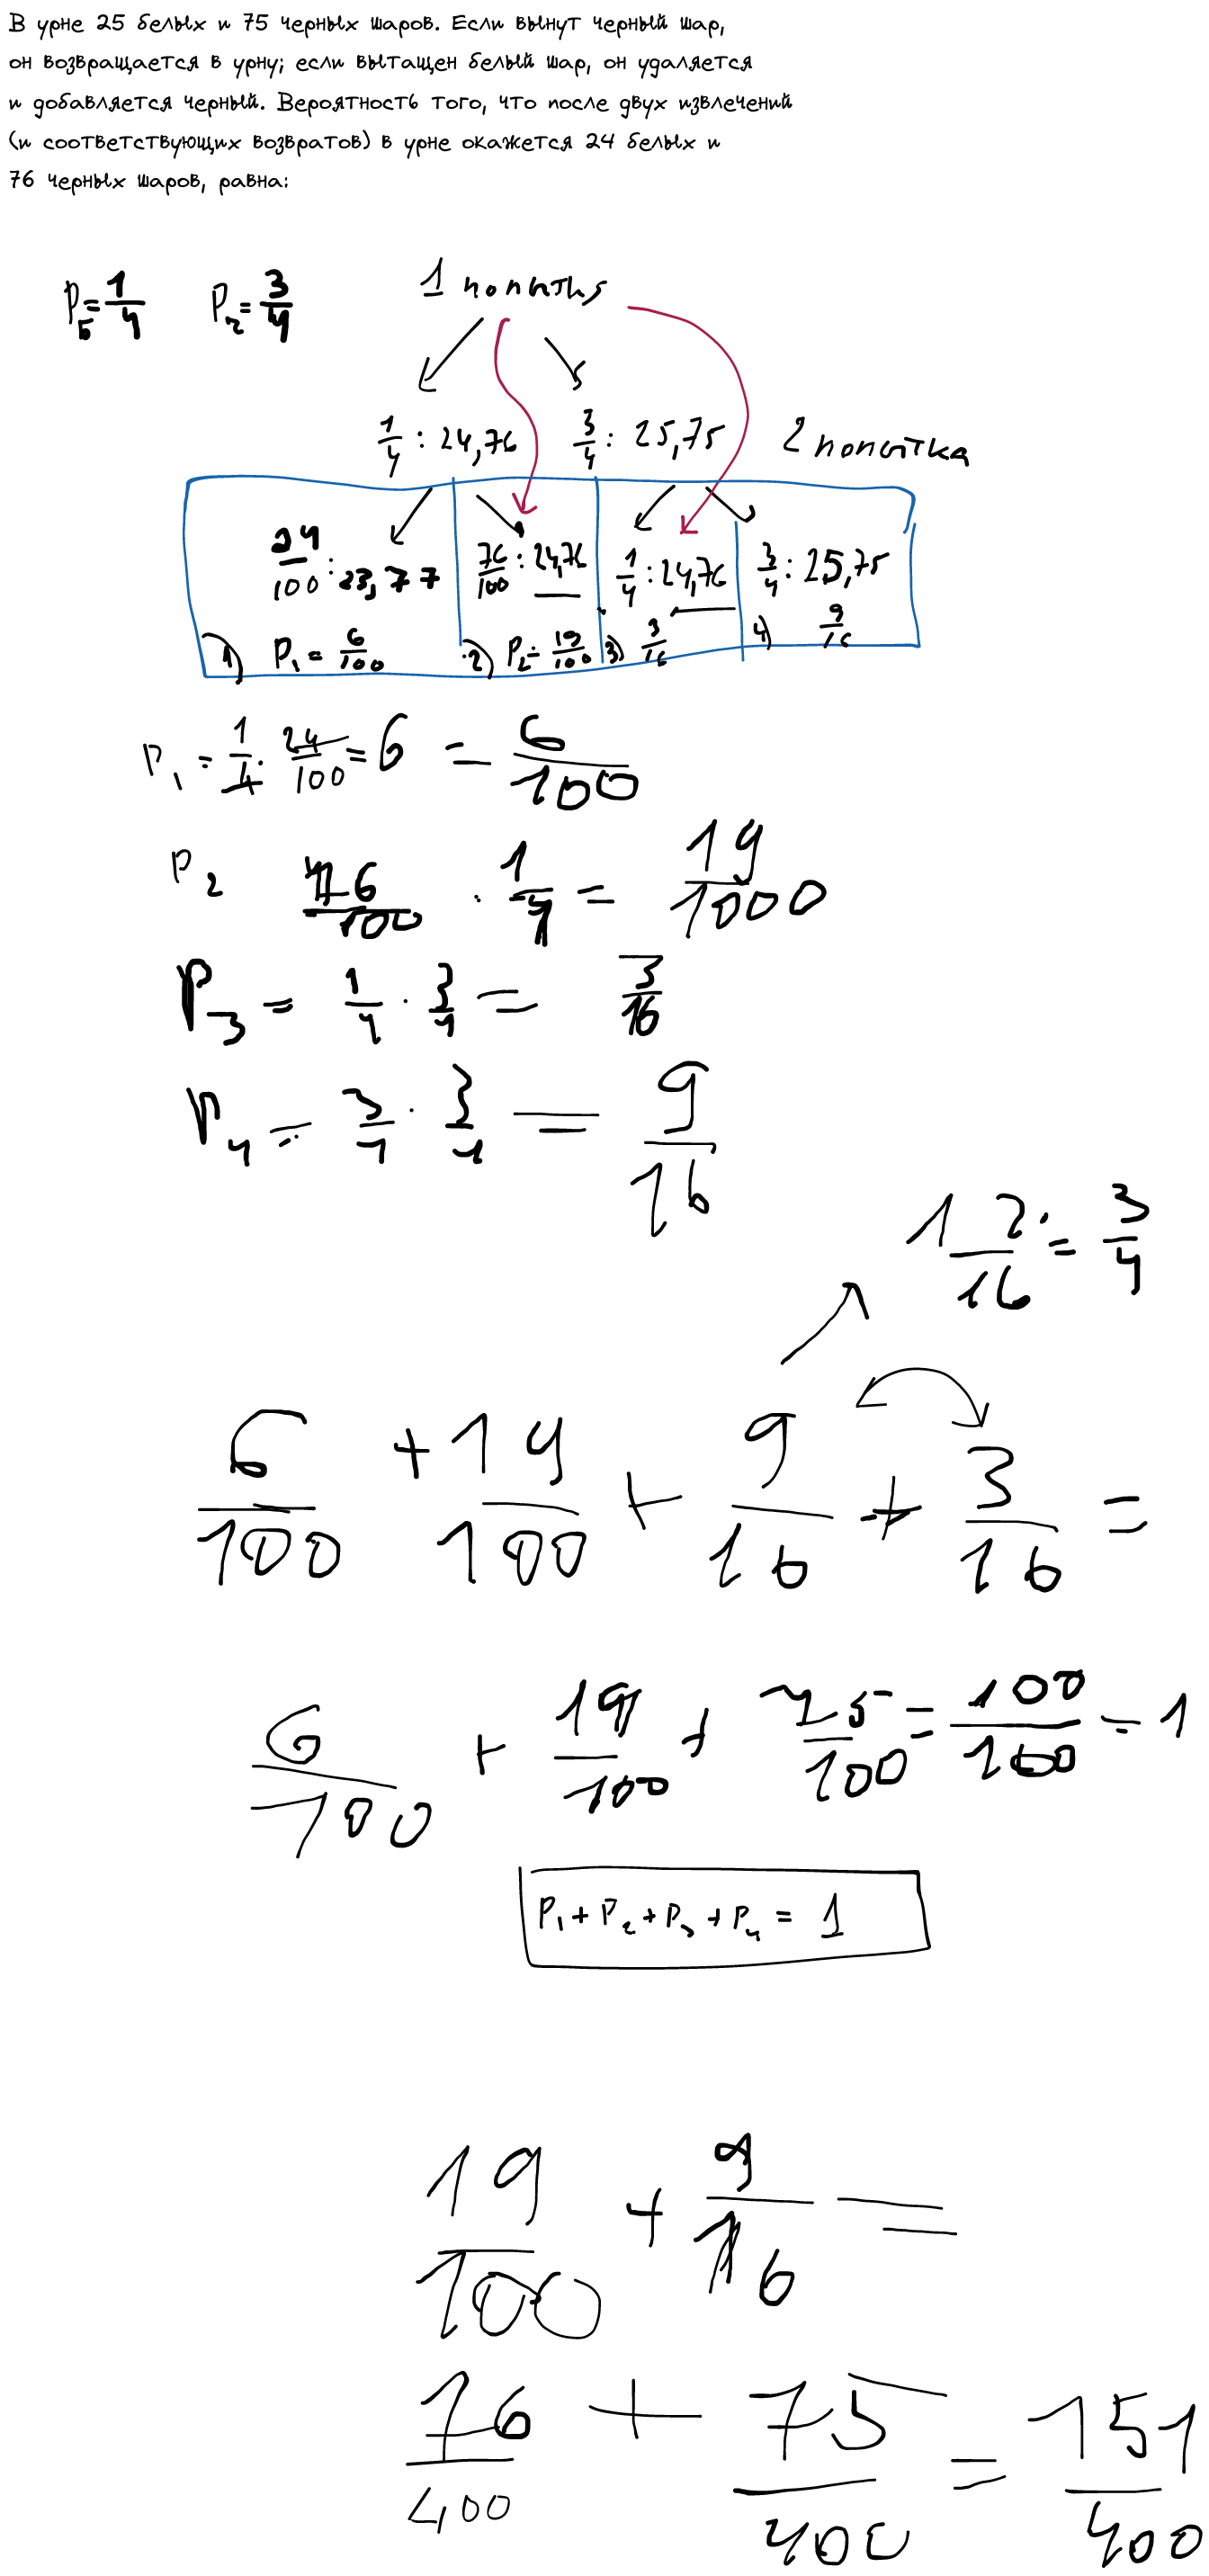 В урне 25 белых и 75 черных шаров. Если вынут черный шар,
он возвращается в урну; если вытащен белый шар, он удаляется
и добавляется черный. Вероятность того, что после двух извлечений
(и соответствующих возвратов) в урне окажется 24 белых и
76 черных шаров, равна:
P_Б = 1/4 P_ч = 3/4 1 попытка
1/4 : 24,76 3/4 : 25,75 2 попытка
24/100 : 23,77 76/100 : 24,76 1/4 : 24,76 3/4 : 25,75
1) P₁ = 6/100 2) P₂ = 19/100 3) 3/16 4) 9/16
P₁ = 1/4 · 24/100 = 6 = 6/100
P₂ 76/100 · 1/4 = 19/1000
P₃ = 1/4 · 3/4 = 3/16
P₄ = 3/4 · 3/4 = 9/16
12/16 = 3/4
6/100 + 19/100 + 9/16 + 3/16 =
6/100 + 19/100 + 75/100 = 100/100 = 1
P₁ + P₂ + P₃ + P₄ = 1
19/100 + 9/16 =
76/400 + 75/400 = 151/400